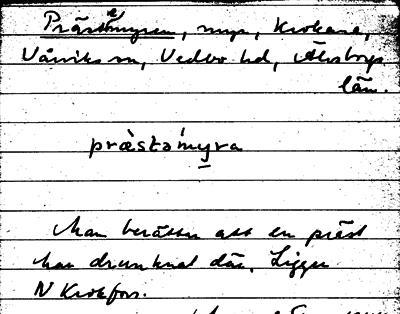 Prästemyren, myr, Krokare,
Vårviks sn, Vedbo hd, Älvsborgs
län.
præ̀stəmy̱ra
Man berättar att en präst
har drunknat där. Ligger
N Krokfors.